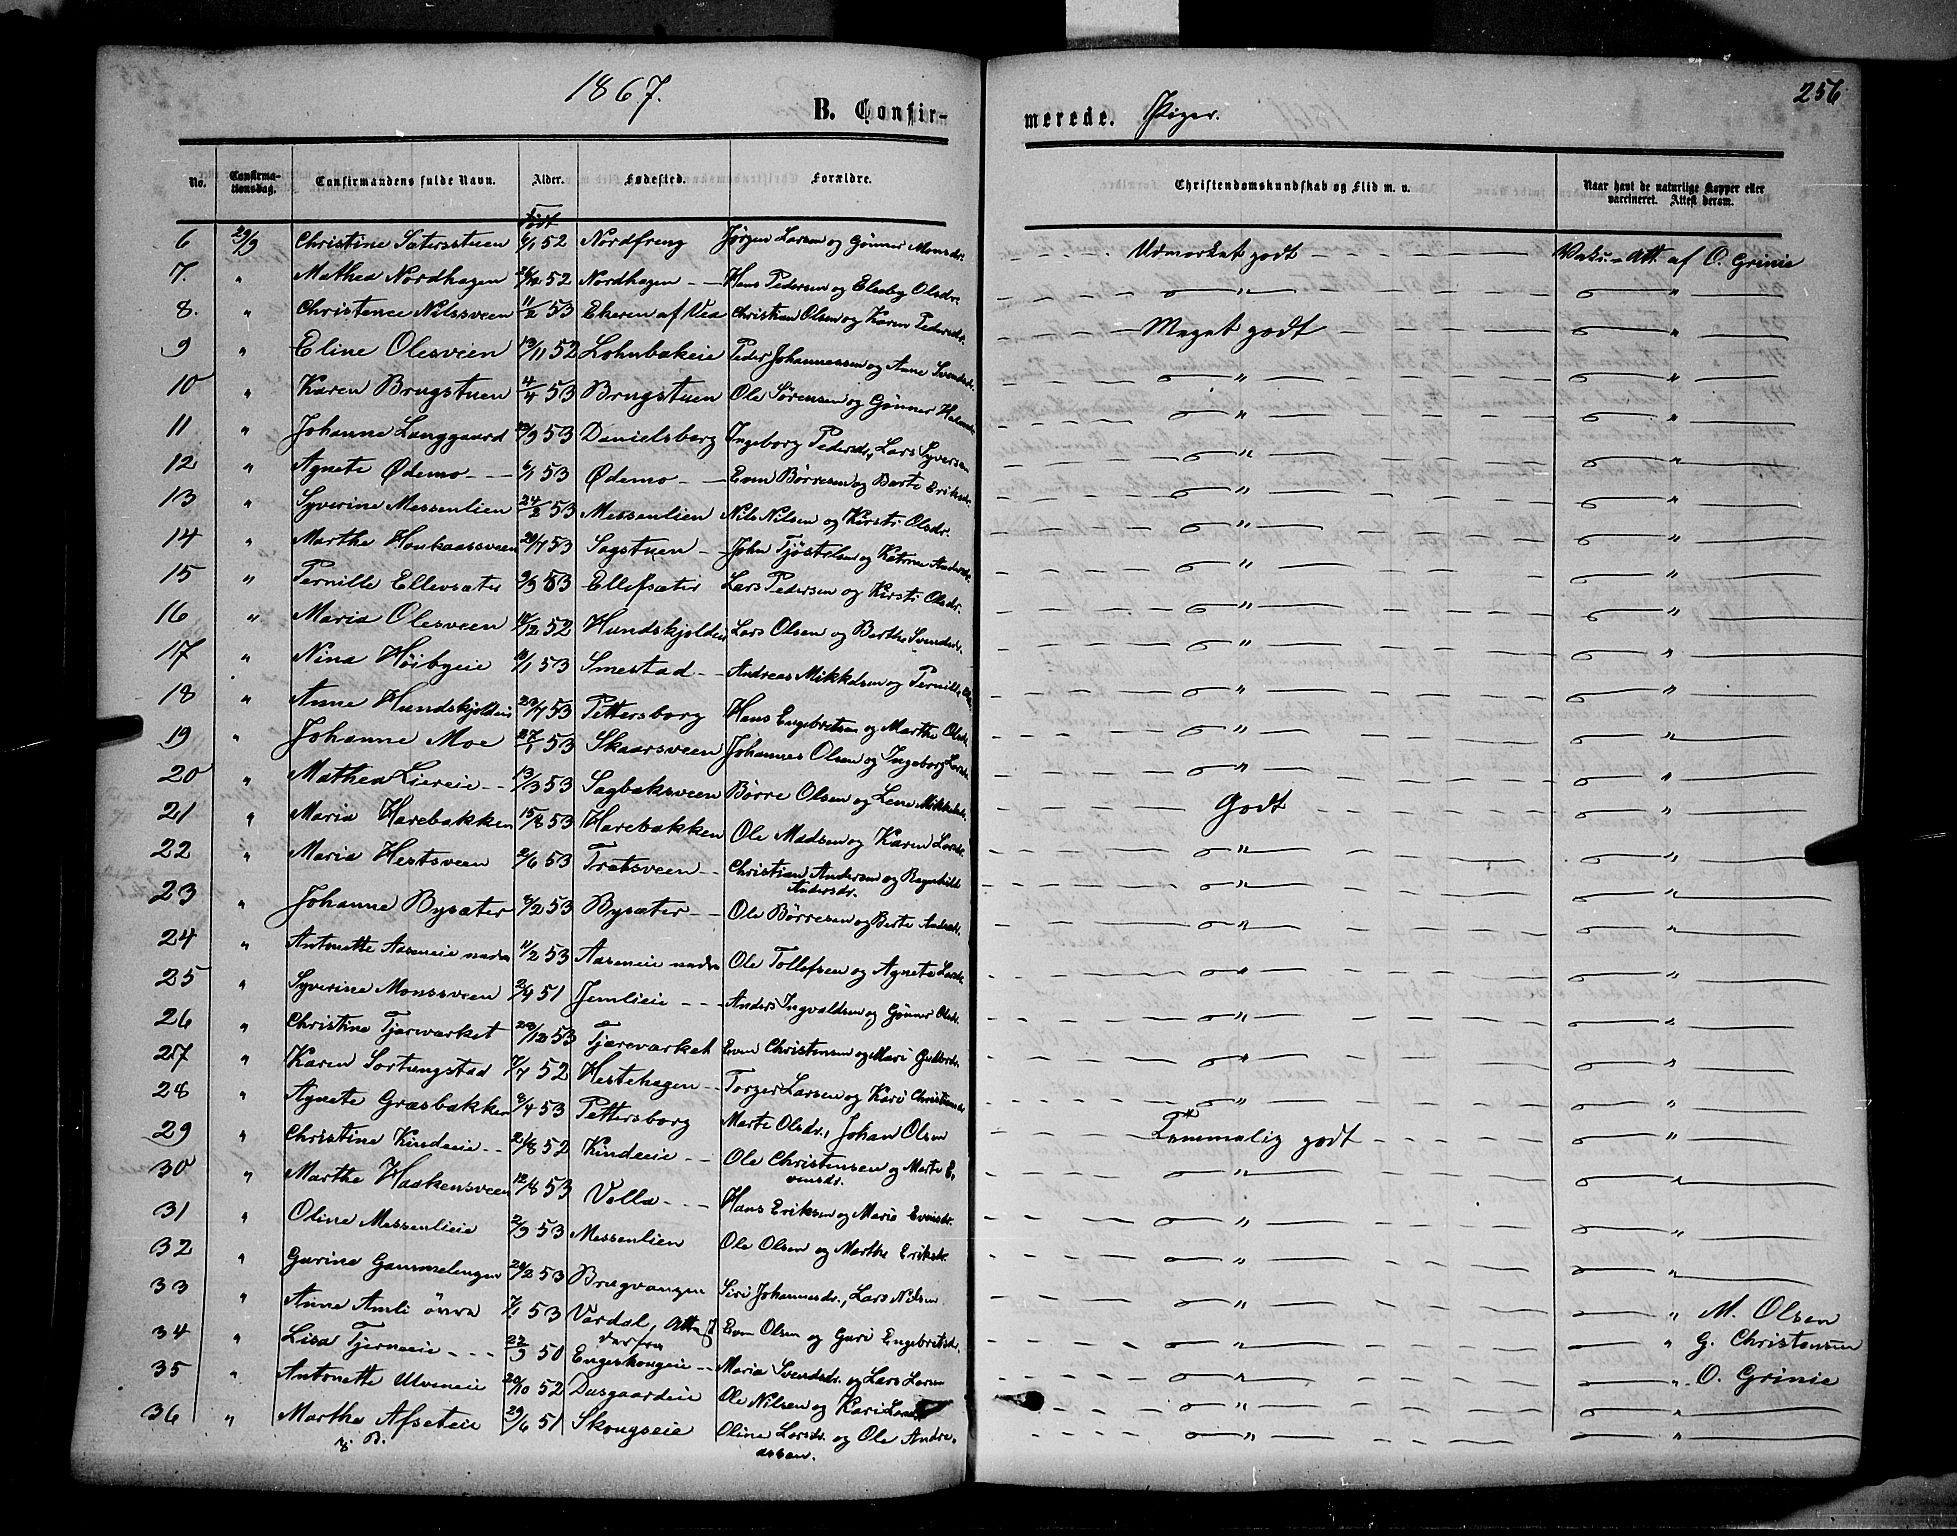 1867.
B. Confirmerede. Piger.
256
No. Confirmationsdag. Confirmandens fulde Navn. Alder. Fødested. Forældre. Christendomskundskab og Flid m. v. Naar havt de naturlige Kopper eller vaccineret. Attest derom.
født
6 29/9 Christine Sætersstuen 6/1 52 Nordfreng Jørgen Larsen og Gønner Monsdr. Udmærket godt Vaks. Att. af O. Grinie
7. " Mathea Nordhagen 52 Nordhagen Hans Pedersen og Elseby Olsdr. " "
8. " Christence Nilssveen 11/2 53 Ekeren af Vea Christian Olsen og Karen Pedersdr. Meget godt "
9 " Eline Olesveen 52 Lohnbækeie Peder Johannessen og Anne Svendsdr. " "
10 " Karen Brugstuen 4/4 53 Brugstuen Ole Sørensen og Gønner " "
11 " Johanne Langgaard 53 Danielsborg Ingeborg Pedersdr., Lars Syversen " "
12 " Agnete Ødemo 6/1 53 Ødemo Even Børresen og Berte Eriksdr. " "
13 " Syverine Messenlien 24/2 53 Messenlien Nils Nilsen og Kirsti Olsdr. " "
14 " Marthe Honkaassveen 53 Sagstuen John Tjøstelsen og Katrine Andersdr. " "
15 " Pernille Ellevsæter 9/3 53 Ellefsæter Lars Pedersen og Kirsti Olsdr. " "
16 " Maria Olesveen 52 Hundskjolden Lars Olsen og Berthe Svendsdr. " "
17 " Nina Høibyeie 53 Smestad Andreas Mikkelsen og Pernille " "
18 " Anne Hundskjoldeie 53 Pettersborg Hans Engebretsen og Marthe Olsdr. " "
19 " Johanne Moe 27/1 53 Skaarsveen Johannes Olsen og Ingeborg Larsdr. " "
20 " Mathea Liereie 53 Sagbaksveen Børre Olsen og Lene Mikkelsdr. " "
21 " Maria Harebakken 53 Harebakken Ole Madsen og Karen Larsdr. Godt "
22 " Maria Hestsveen 2/6 53 Trætsveen Christian Andersen og Ragnhild Andersdr. " "
23 " Johanne Bysæter 6/2 53 Bysæter Ole Børresen og Berte Andersdr. " "
24 " Antonette Aaseneie nedre 11/2 53 Aaseneie nedre Ole Tollefsen og Agnete Larsdr. " "
25 " Syverine Monssveen 2/4 51 Jemlieie Anders Ingvaldsen og Gønner Olsdr. " "
26 " Christine Tjærværket 53 Tjæreværket Even Christensen og Mari Gulbrdr. " "
27 " Karen Sortungstad 7/7 52 Hestehagen Torger Larsen og Kari Christiansdr. " "
28 " Agnete Græsbakken 8/4 53 Pettersborg Marte Olsdr., Johan Olsen " "
29 " Christine Kindeeie 52 Kindeeie Ole Christensen og Marte Evensdr. Temmelig godt "
30 " Marthe Haakensveen 12/8 53 Volla Hans Eriksen og Maria Evensdr. " "
31 " Oline Messenlieie 2/3 53 Messenlien Ole Olsen og Marthe Eriksdr. " "
32 " Gurine Gammelengen 53 Brugvangen Siri Johannesdr., Lars Nilsen " "
33 " Anne Amli øvre 7/1 53 Vardal, Att. derfra Even Olsen og Guri Engebretsdr. " " M. Olsen
34 " Lisa Tjerneeie 22/3 50 Engeskougeie Maria Svendsdr. og Lars Larsen " " G. Christensen
35 " Antonette Ulveneie 20/10 52 Dusgaardeie Ole Nilsen og Kari Larsdr. " " O. Grinie
36 " Marthe Afseteie 29/6 51 Skougseie Oline Larsdr. og Ole Andreassen. " "